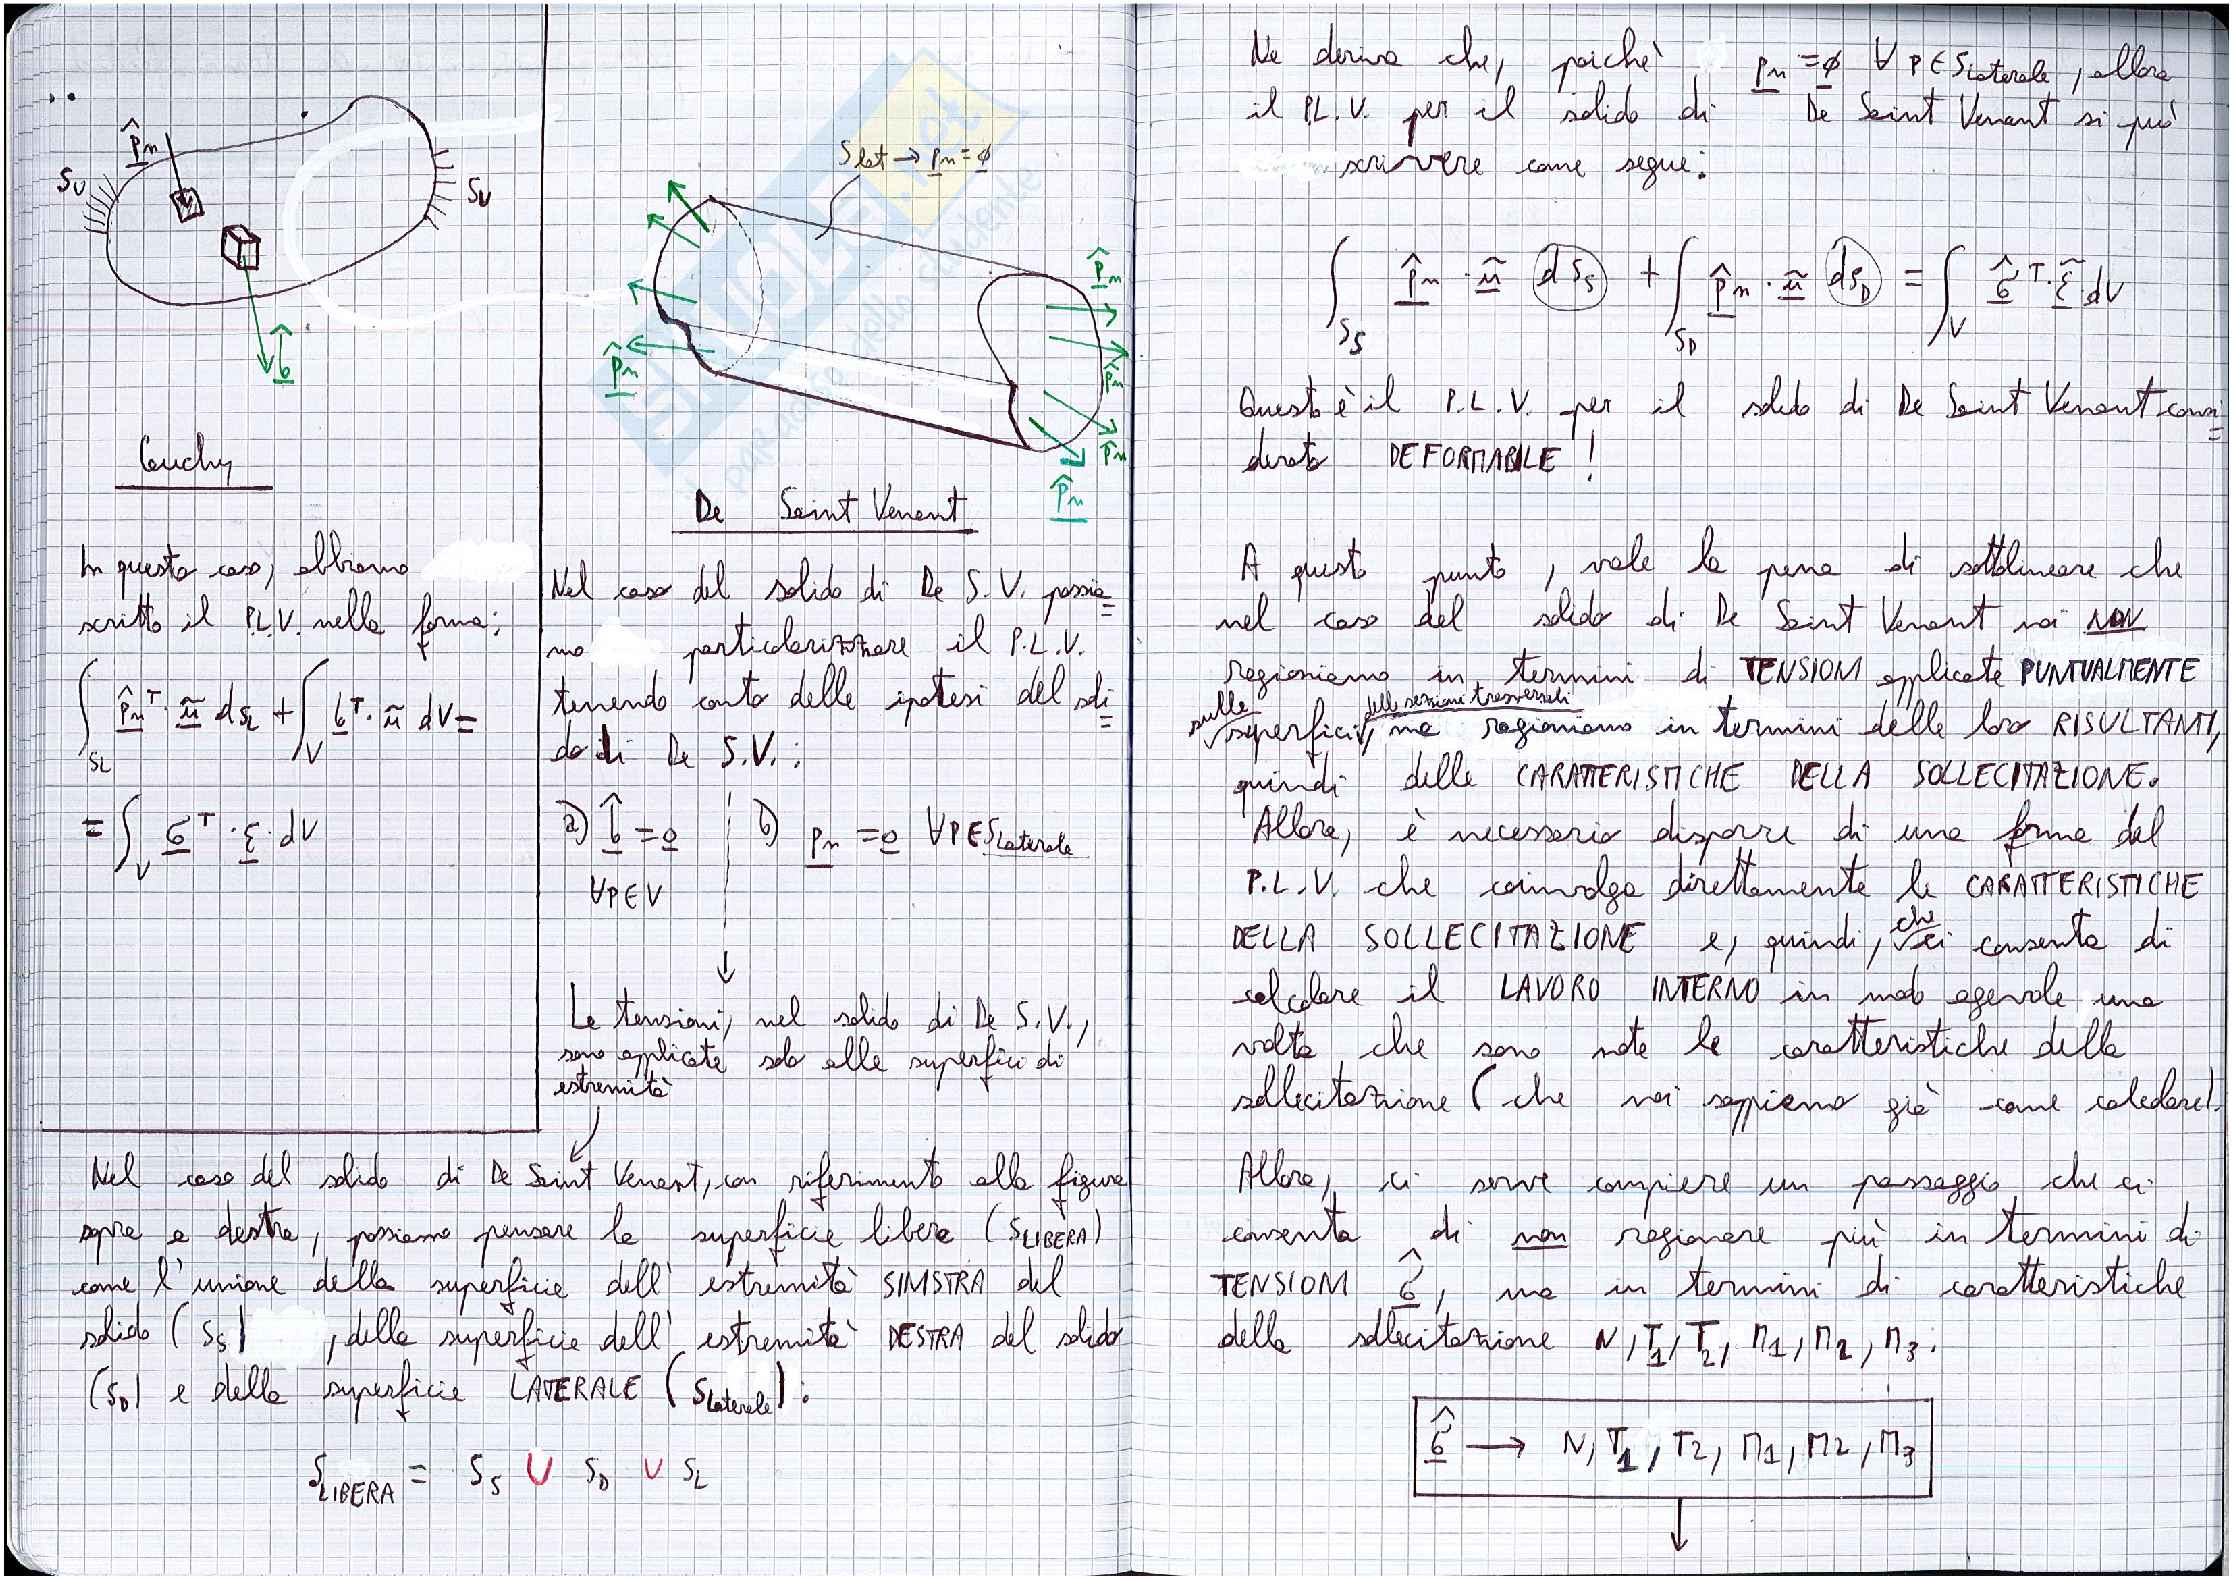 p̂n
Su
Su
b̂
Cauchy
In questo caso, abbiamo
scritto il P.L.V. nella forma:
∫SL p̂n^T · ũ dsL + ∫V b^T · ũ dV =
= ∫V σ^T · ε · dV
Slat → pn = ϕ
p̂n
p̂n
p̂n
p̂n
p̂n
De Saint Venant
Nel caso del solido di De S.V. possia=
mo particolarizzare il P.L.V.
tenendo conto delle ipotesi del soli=
do di De S.V.:
a) b̂ = 0
∀P∈V
b) pn = 0 ∀P∈Slaterale
Le tensioni, nel solido di De S.V.,
sono applicate solo alle superfici di
estremità
Nel caso del solido di De Saint Venant, con riferimento alla figura
sopra a destra, possiamo pensare la superficie libera (SLIBERA)
come l'unione della superficie dell'estremità SINISTRA del
solido (SS) , della superficie dell'estremità DESTRA del solido
(SD) e della superficie LATERALE (Slaterale):
SLIBERA = SS ∪ SD ∪ SL
Ne deriva che, poichè pn = ϕ ∀P∈Slaterale, allora
il P.L.V. per il solido di De Saint Venant si può
scrivere come segue:
∫SS p̂n · ũ dSS + ∫SD p̂n · ũ dSD = ∫V σ̂^T · ε̃ dV
Questo è il P.L.V. per il solido di De Saint Venant consi=
derato DEFORMABILE!
A questo punto, vale la pena di sottolineare che
nel caso del solido di De Saint Venant noi NON
ragioniamo in termini di TENSIONI applicate PUNTUALMENTE
sulle superfici delle sezioni trasversali, ma ragioniamo in termini delle loro RISULTANTI,
quindi delle CARATTERISTICHE DELLA SOLLECITAZIONE.
Allora, è necessario disporre di una forma del
P.L.V. che coinvolga direttamente le CARATTERISTICHE
DELLA SOLLECITAZIONE e, quindi, che ci consenta di
calcolare il LAVORO INTERNO in modo agevole una
volta che sono note le caratteristiche della
sollecitazione (che noi sappiamo già come calcolare).
Allora, ci serve compiere un passaggio che ci
consenta di non ragionare più in termini di
TENSIONI σ̂, ma in termini di caratteristiche
della sollecitazione N, T1, T2, M1, M2, M3:
σ̂ → N, T1, T2, M1, M2, M3